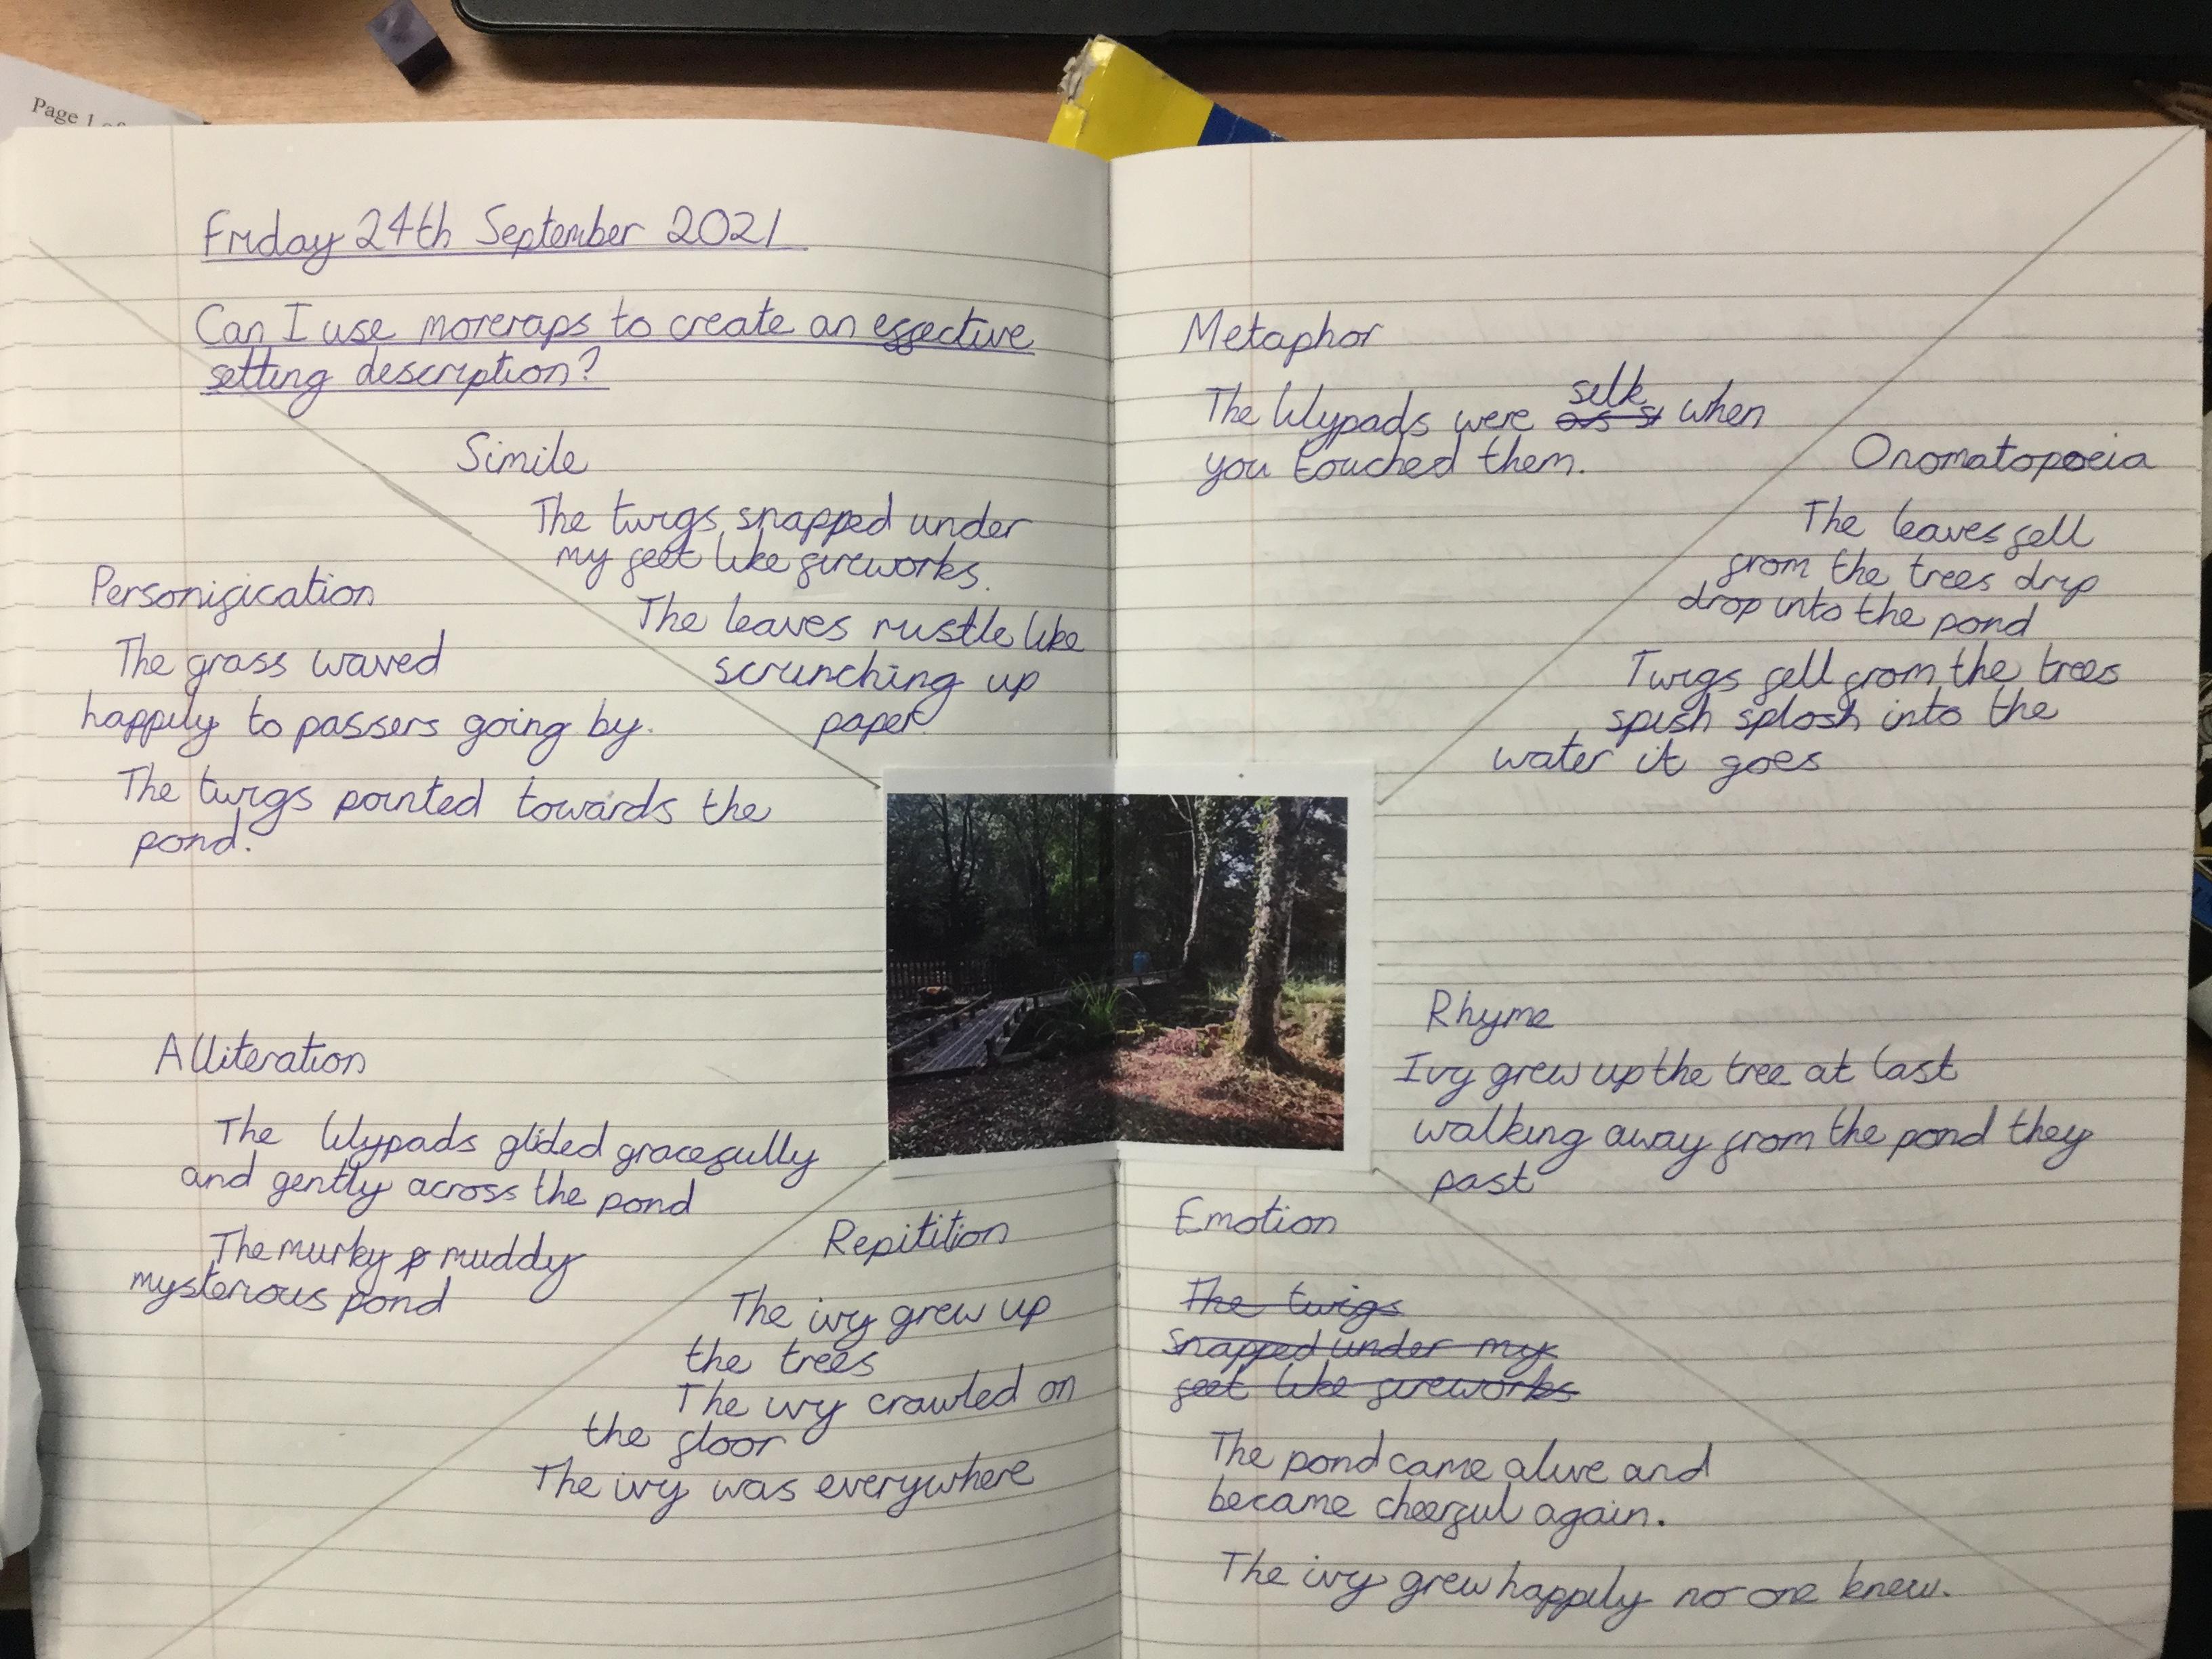 Page 1 of
Friday 24th September 2021
Can I use moreraps to create an effective
setting description?
Simile
The twigs snapped under
my feet like fireworks.
The leaves rustle like
scrunching up
paper
Personification
The grass waved
happily to passers going by.
The twigs pointed towards the
pond.
Alliteration
The lilypads glided gracefully
and gently across the pond
The murky p muddy
mysterious pond
Repitition
The ivy grew up
the trees
The ivy crawled on
the floor
The ivy was everywhere
Metaphor
The lilypads were as si silk when
you touched them.
Onomatopoeia
The leaves fell
from the trees drip
drop into the pond
Twigs fell from the trees
splish splosh into the
water it goes
Rhyme
Ivy grew up the tree at last
walking away from the pond they
past
Emotion
The twigs
snapped under my
feet like fireworks
The pond came alive and
became cheerful again.
The ivy grew happily no one knew.